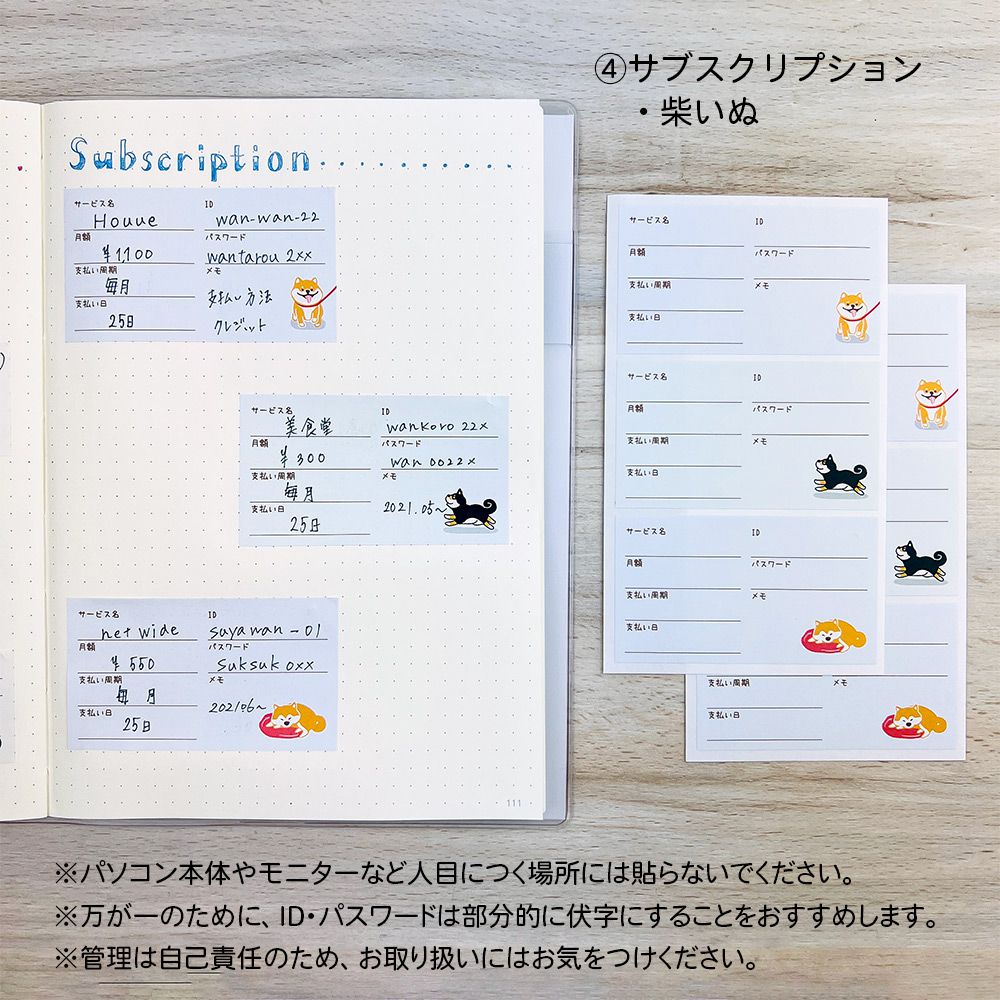 ④サブスクリプション
・柴いぬ
Subscription..........
サービス名 ID
Houue wan-wan-22
月額 パスワード
¥1,100 wantarou 2××
支払い周期 メモ
毎月 支払い方法
支払い日 クレジット
25日
サービス名 ID
美食堂 wankoro 22×
月額 パスワード
¥300 wan 0022×
支払い周期 メモ
毎月
支払い日 2021.05~
25日
サービス名 ID
net wide suyawan-01
月額 パスワード
¥550 suksuk 0××
支払い周期 メモ
毎月 202106~
支払い日
25日
111
サービス名 ID
月額 パスワード
支払い周期 メモ
支払い日
サービス名 ID
月額 パスワード
支払い周期 メモ
支払い日
サービス名 ID
月額 パスワード
支払い周期 メモ
支払い日
支払い周期 メモ
支払い日
※パソコン本体やモニターなど人目につく場所には貼らないでください。
※万が一のために、ID・パスワードは部分的に伏字にすることをおすすめします。
※管理は自己責任のため、お取り扱いにはお気をつけください。